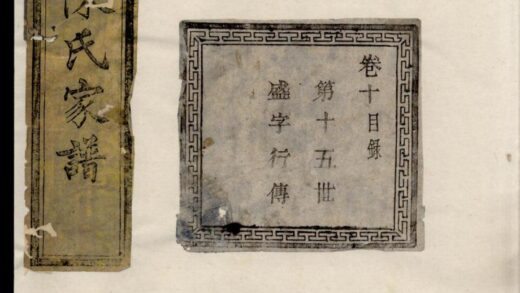 氏家譜
卷十目錄
第十五世
盛字行傳